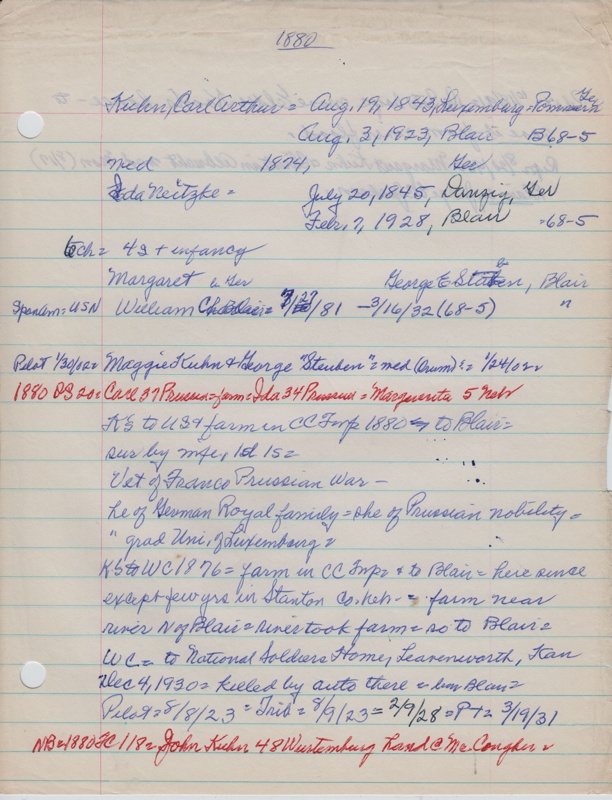 1880
Kuhn, Carl Arthur = Aug. 19, 1843, Luxemburg = Pommern Ger
Aug. 3, 1923, Blair B68-5
med 1874, Ger
Ida Neitzke = July 20, 1845, Danzig, Ger
Feb. 7, 1928, Blair =68-5
ch = 4S + infancy
Margaret b Ger George E Stuben, Blair
Spanam = USN William = 7/27/81 - 3/16/32 (68-5) "
Pilot 1/30/02 = Maggie Kuhn & George "Steuben" = med (Orum) = 1/24/02 =
1880 DS 20 = Carl 37 Prussia = farm = Ida 34 Prussia = Marguerita 5 Neb
K's to U39 farm in CC Twp 1880 to Blair =
sur by wife, 1d 1s =
Vet of Franco Prussian War -
he of German Royal family = she of Prussian nobility =
" grad Uni. of Luxembourg =
K's to WC 1876 = farm in CC Twp = & to Blair = here since
except few yrs in Stanton Co. Neb - = farm near
river N of Blair = river took farm = so to Blair =
WC = to National Soldiers Home, Leavenworth, Kan
Dec 4, 1930 = killed by auto there = bur Blair =
Pilot = 8/8/23 = Trib = 8/9/23 = 2/9/28 = P+ = 3/19/31
NB = 1880 FC 118 = John Kuhn 48 Wurtemburg Land @ McConghey =